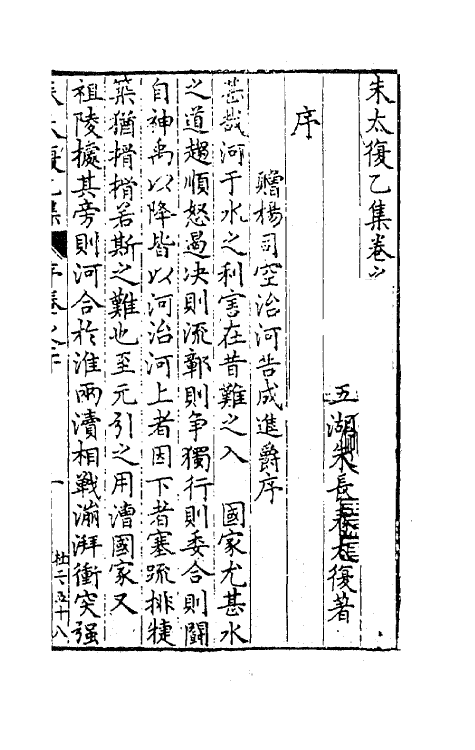 朱太復乙集卷之
五湖朱長春太復著
序
贈楊司空治河告成進爵序
甚哉河于水之利害在昔難之入 國家尤甚水
之道趨順怒遏决則流鄣則争獨行則委合則鬪
自神禹以降皆以河治河上者因下者塞疏排揵
築猶榰榰若斯之難也至元引之用漕國家又
祖陵據其旁則河合於淮兩瀆相戰漰湃衝突强
朱太復乙集 序卷之 一 杜二五十八